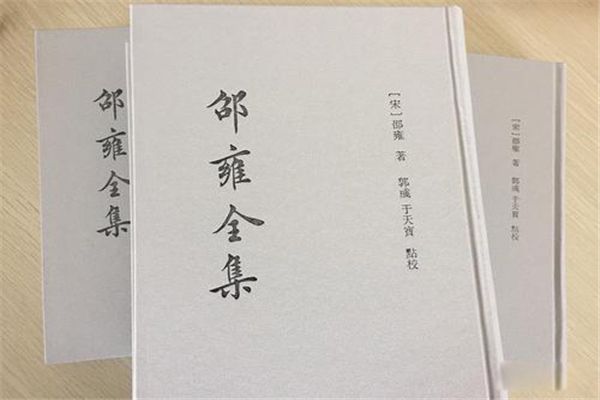 邵雍全集
邵雍全集
［宋］邵雍 著 郭彧 于天寶 點校
［宋］邵雍 著 郭彧 于天寶 點校